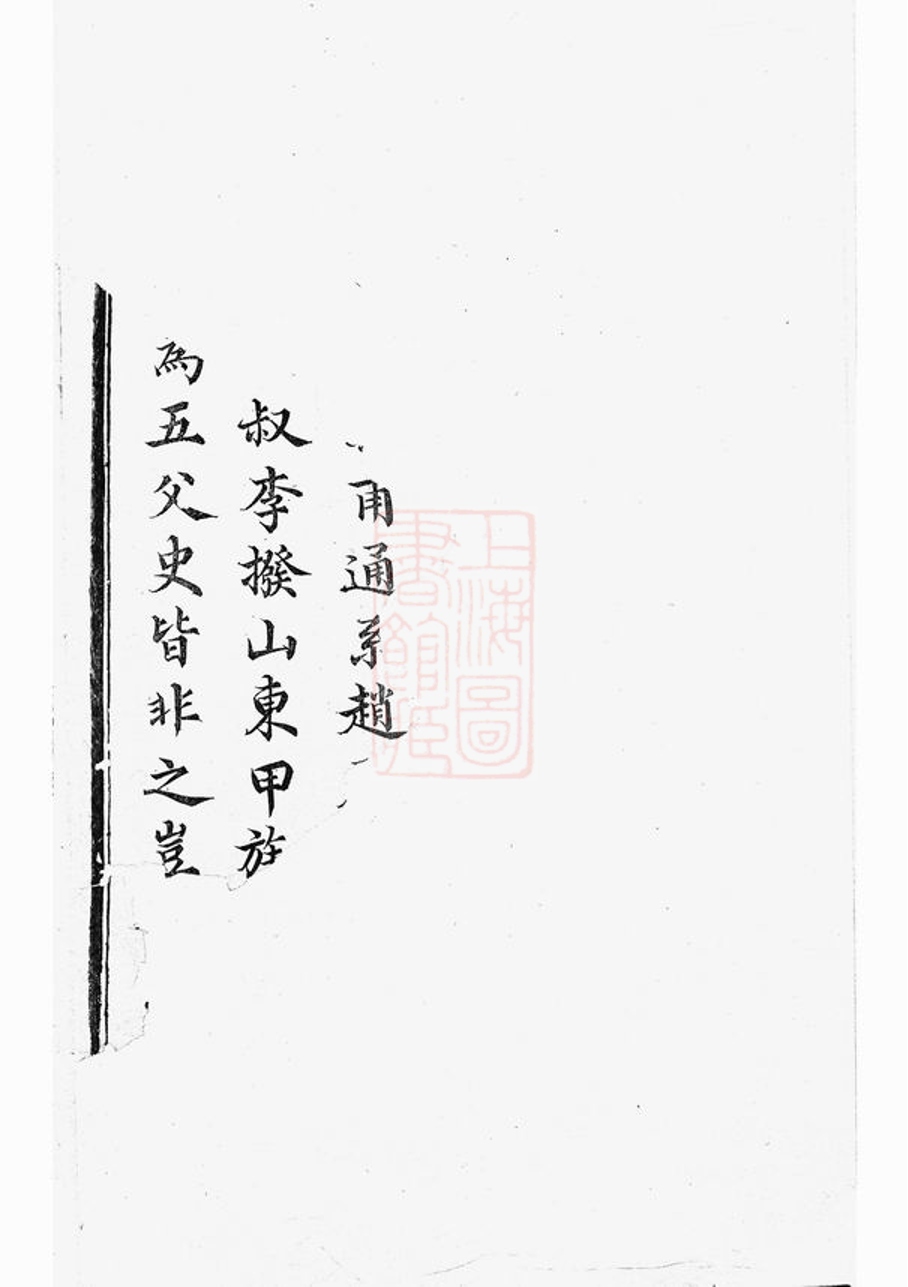 甬通系趙
叔李揆山東甲族
爲五父史皆非之豈
上海圖書館藏